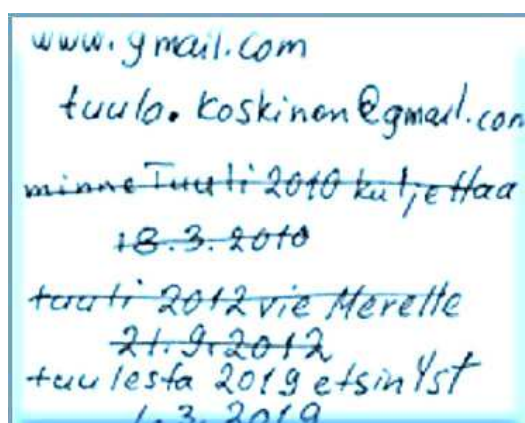 www.gmail.com
tuulo.koskinen@gmail.com
minne Tuuli 2010 kuljettaa
18.3.2010
tuuli 2012 vie Merelle
21.9.2012
tuulesta 2019 etsin Yst
1.3.2019